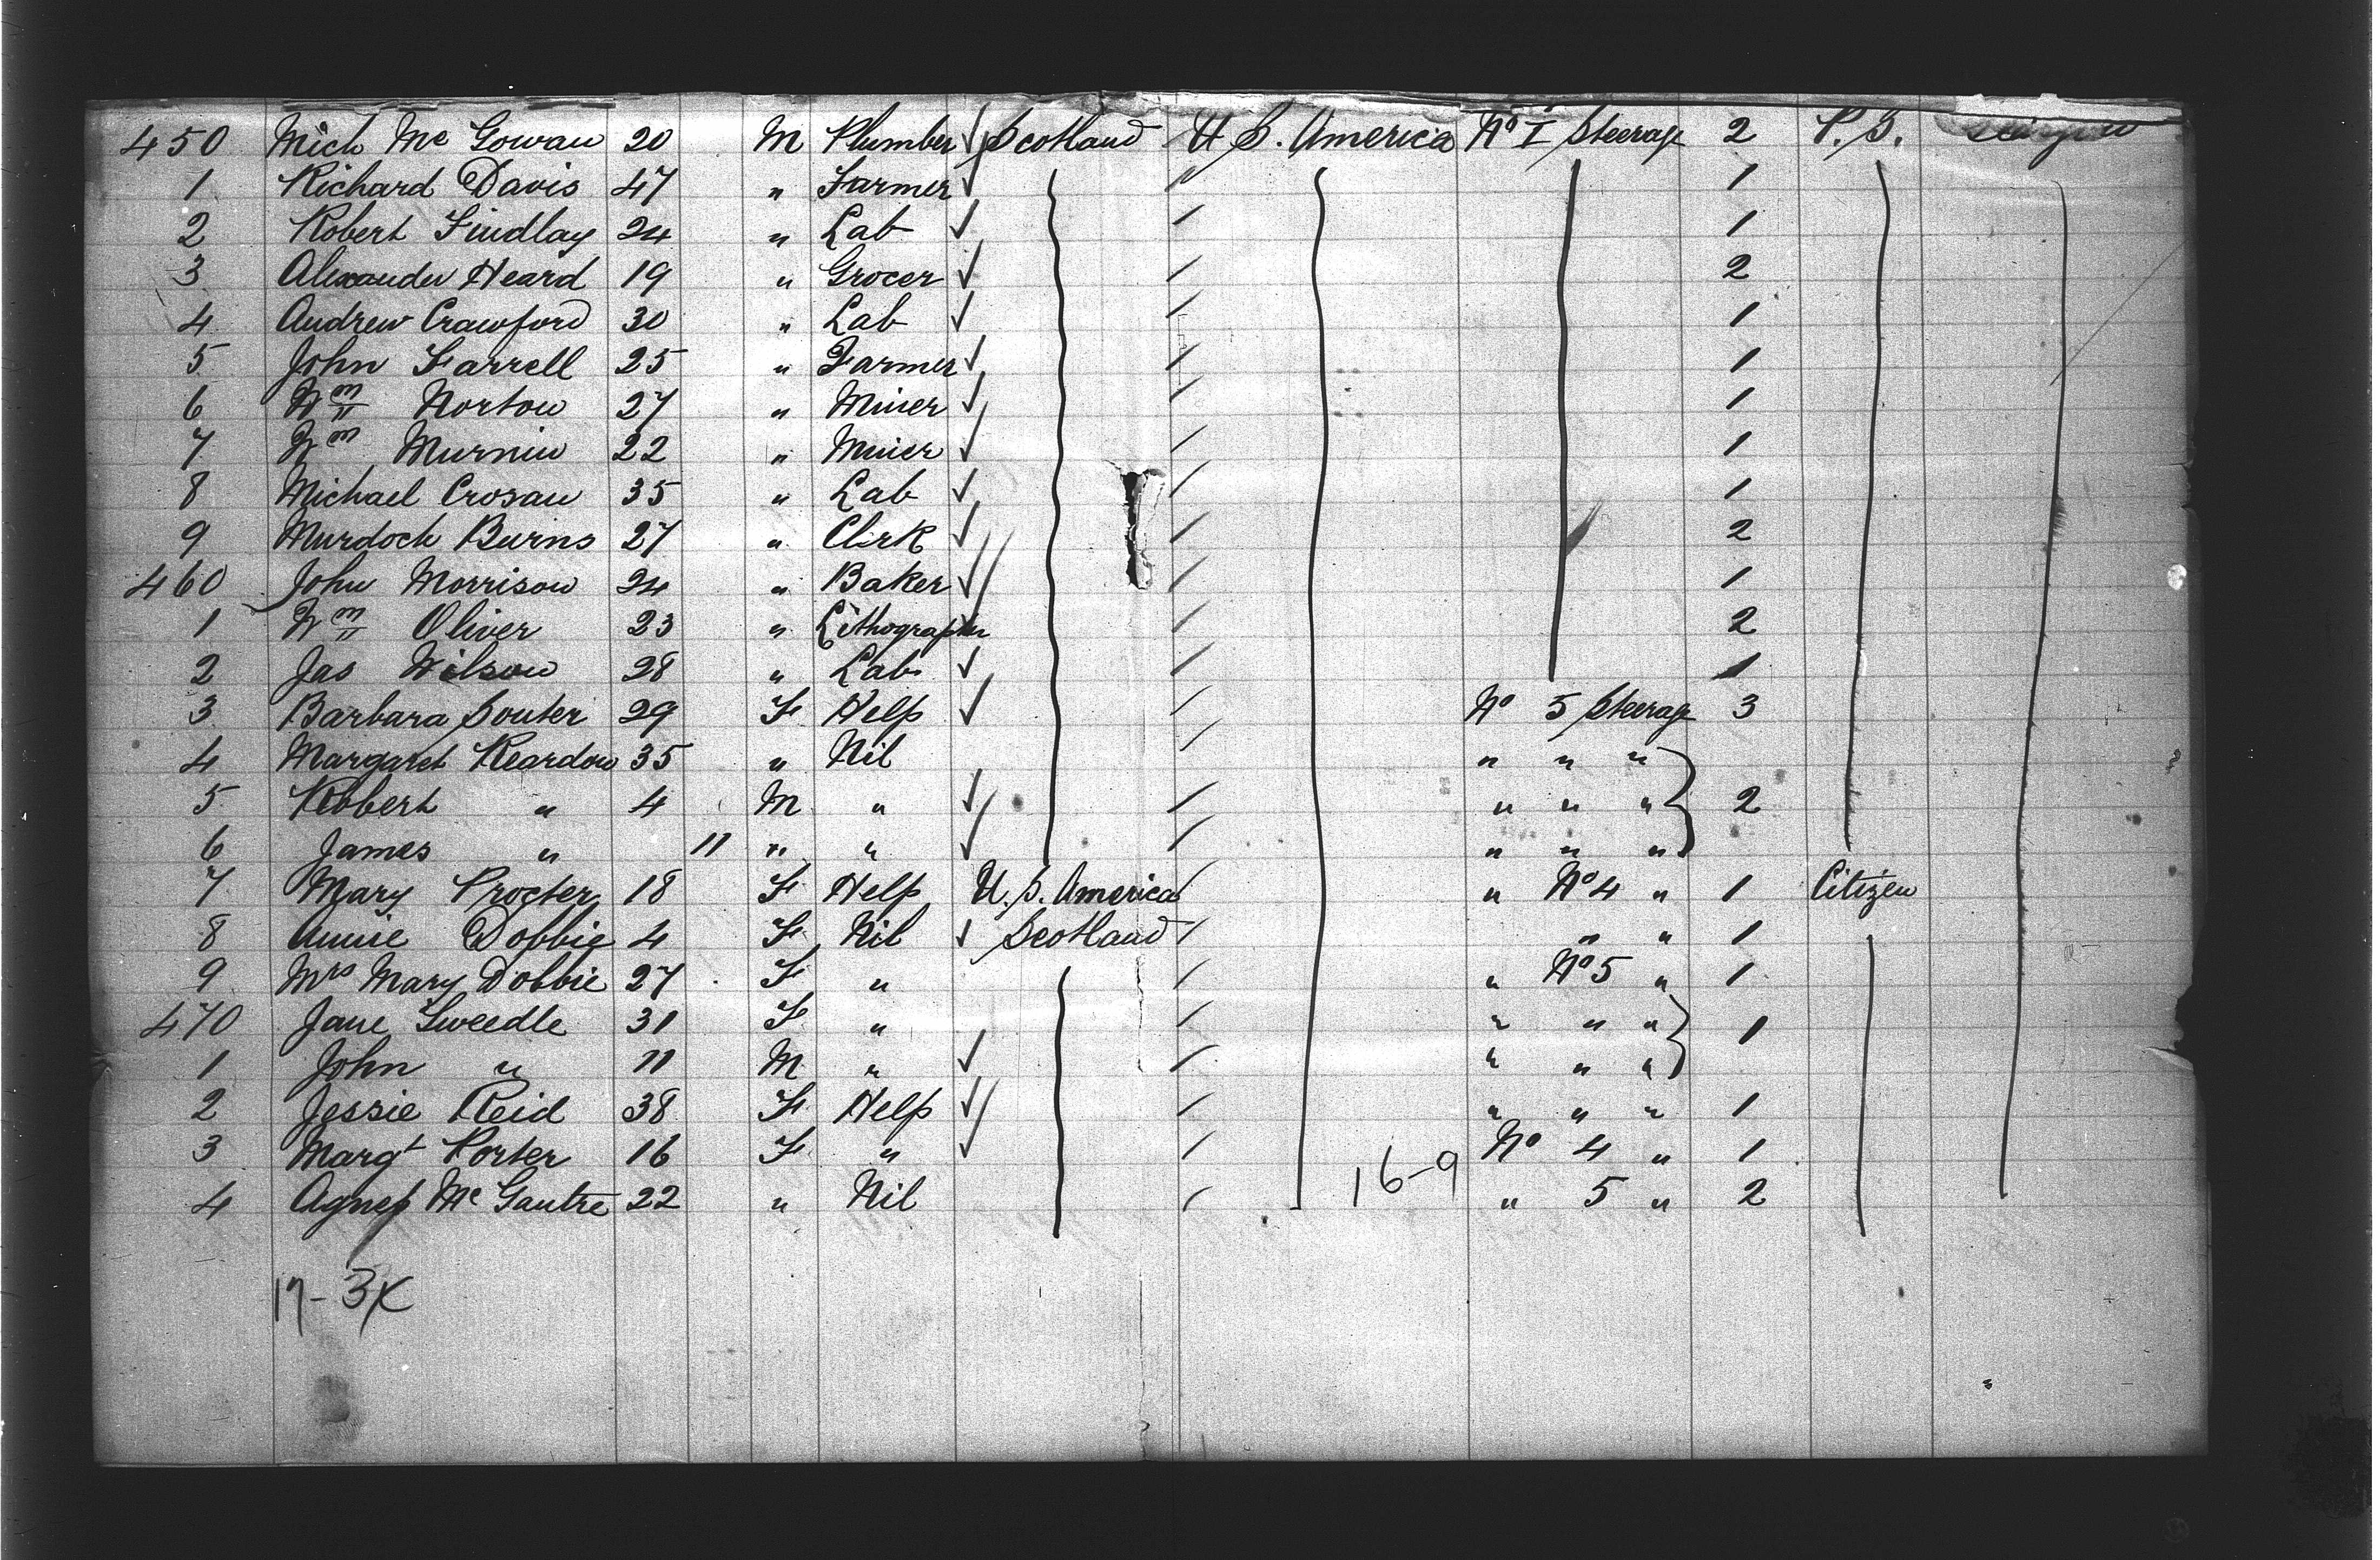 450 Mich Mc Gowan 20 M Plumber Scotland U.S. America No I Steerage 2 P.S.
1 Richard Davis 47 " Farmer 1
2 Robert Findlay 24 " Lab 1
3 Alexander Heard 19 " Grocer 2
4 Andrew Crawford 30 " Lab 1
5 John Farrell 25 " Farmer 1
6 Wm Norton 27 " Miner 1
7 Wm Murnin 22 " Miner 1
8 Michael Crosan 35 " Lab 1
9 Murdoch Burns 27 " Clerk 2
460 John Morrison 24 " Baker 1
1 Wm Oliver 23 " Lithographer 2
2 Jas Wilson 28 " Lab 1
3 Barbara Souter 29 F Help No 5 Steerage 3
4 Margaret Reardon 35 " Nil " " "
5 Robert " 4 M " " " " 2
6 James " 11 " " " " "
7 Mary Procter 18 F Help U.S. America " No 4 " 1 Citizen
8 Annie Dobbie 4 F Nil Scotland " " 1
9 Mrs Mary Dobbie 27 F " " No 5 " 1
470 Jane Tweedle 31 F " " " " 1
1 John " 11 M " " " "
2 Jessie Reid 38 F Help " " " 1
3 Margt Porter 16 F " No 4 " 1
4 Agnes Mc Gautre 22 " Nil 16-9 " 5 " 2
17-3X